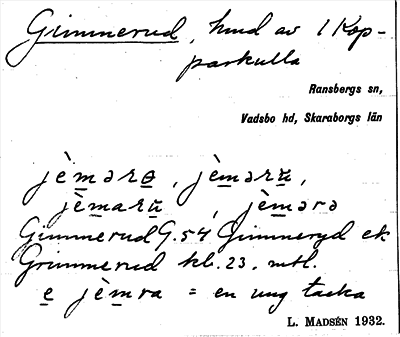 Gimmerud, hmd av 1 Kop-
parkulla
Ransbergs sn,
Vadsbo hd, Skaraborgs län
jèmərɵ, jèmərʉ̄,
jèmarʉ̄, jèmərə
Gimmerud G.54 Gimmeryd ek
Grimmerud kb.23. mtl.
e jèmra = en ung tacka
L. MADSÉN 1932.